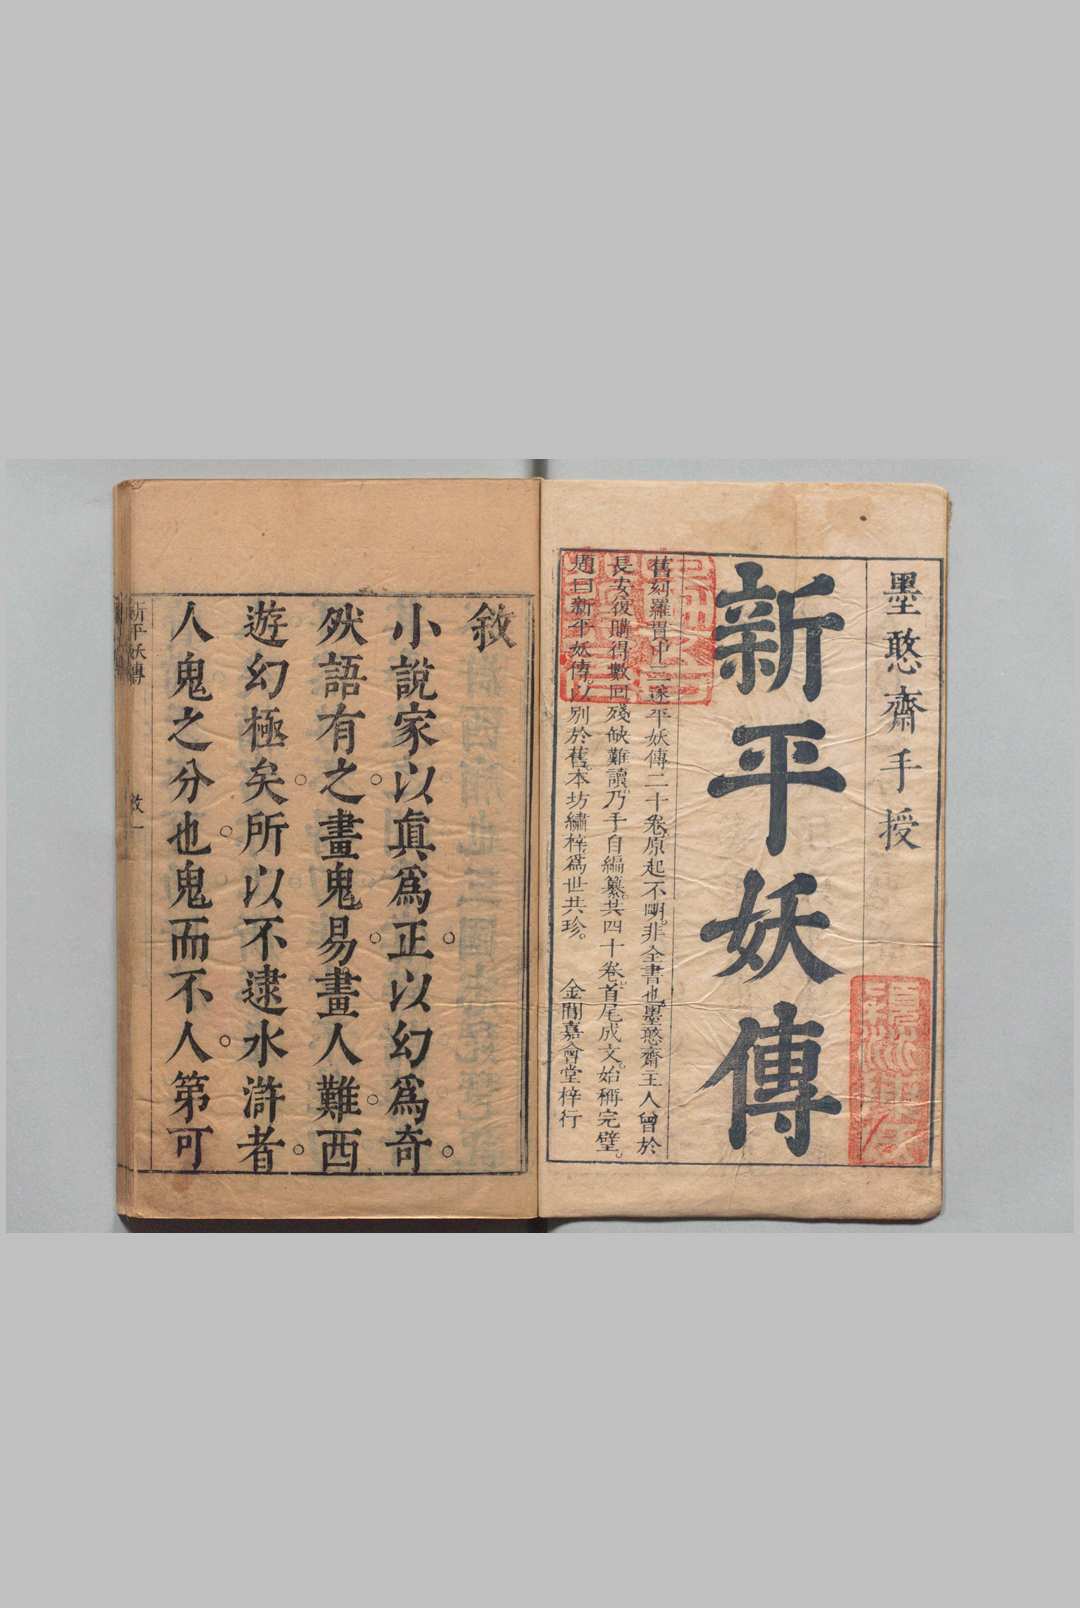 墨憨齋手授
新平妖傳
舊刻羅貫中三遂平妖傳二十卷原起不明非全書也墨憨齋主人曾於
長安復購得數回殘缺難讀乃手自編纂共四十卷首尾成文始稱完璧
題曰新平妖傳以別於舊本坊繡梓為世共珍 金閶嘉會堂梓行
敘
小說家以真為正以幻為奇
然語有之畫鬼易畫人難西
遊幻極矣所以不逮水滸者
人鬼之分也鬼而不人第可
新平妖傳 敘 一